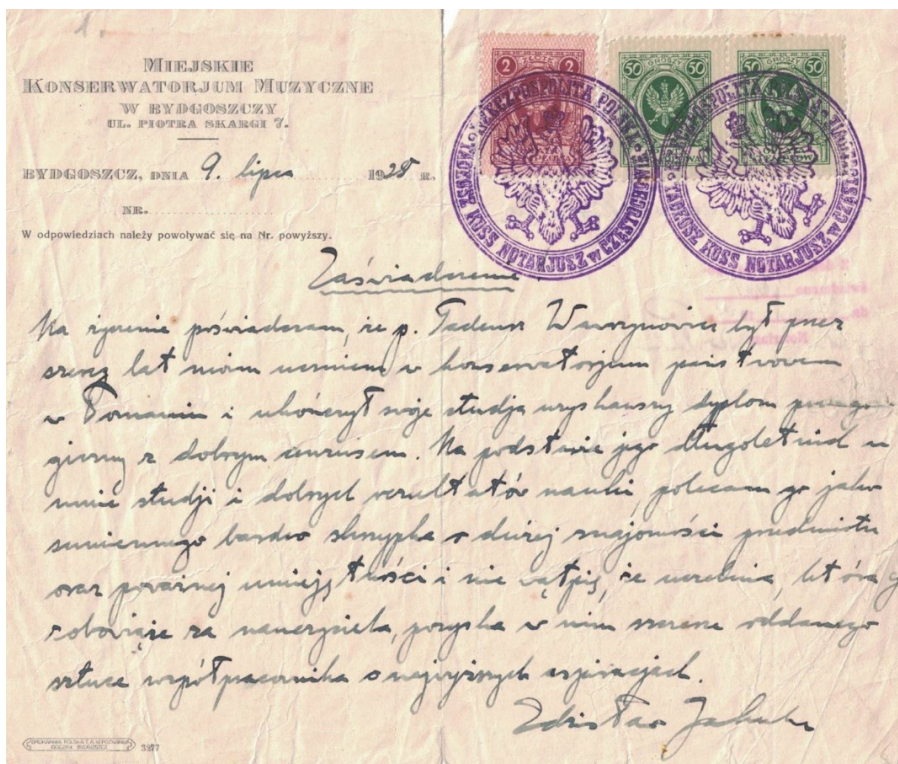 MIEJSKIE
KONSERWATORJUM MUZYCZNE
W BYDGOSZCZY
UL. PIOTRA SKARGI 7.
BYDGOSZCZ, DNIA 9. lipca 1928 R.
NR.
W odpowiedziach należy powoływać się na Nr. powyższy.
2 ZŁOTE 2
50 GROSZY 50
50 GROSZY 50
RZECZPOSPOLITA POLSKA
TADEUSZ KOSS NOTARJUSZ w CZĘSTOCHOWIE
RZECZPOSPOLITA POLSKA
TADEUSZ KOSS NOTARJUSZ w CZĘSTOCHOWIE
Zaświadczenie
Na życzenie poświadczam, że p. Tadeusz Wawrzynowicz był przez
sześć lat moim uczniem w konserwatorjum państwowem
w Poznaniu i ukończył swoje studja uzyskawszy dyplom
z dobrym cenzusem. Na podstawie jego długoletnich u
mnie studji i dobrych rezultatów nauki, polecam go jako
sumiennego bardzo skrzypka o dużej znajomości przedmiotu
oraz poważnej umiejętności i nie wątpię, że uczelnia, która go
zobowiąże za nauczyciela, pozyska w nim szczerze oddanego
sztuce współpracownika o najwyższych aspiracjach.
Zdzisław Jahnke
3577